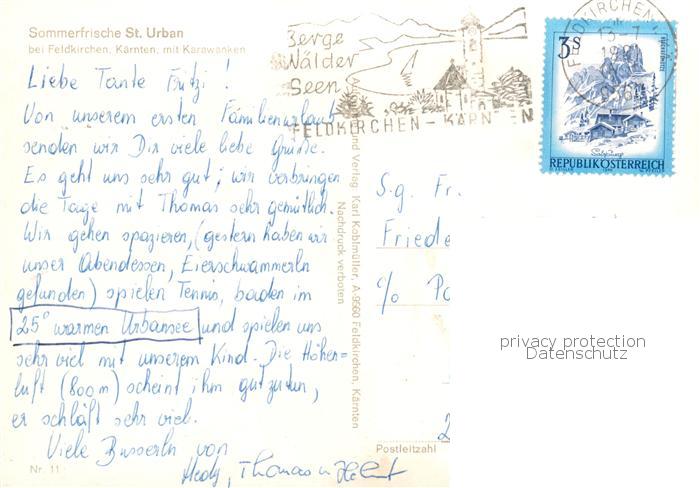 Sommerfrische St. Urban
bei Feldkirchen, Kärnten, mit Karawanken
Liebe Tante Fritzi!
Von unserem ersten Familienurlaub
senden wir Dir viele liebe Grüsse.
Es geht uns sehr gut; wir verbringen
die Tage mit Thomas sehr gemütlich.
Wir gehen spazieren, (gestern haben wir
unser Abendessen, Eierschwammerln
gefunden) spielen Tennis, baden im
25° warmen Urbansee und spielen uns
sehr viel mit unserem Kind. Die Höhen=
luft (800m) scheint ihm gutzutun,
er schläft sehr viel.
Viele Busserln von
Thomas u
Nr. 11
und Verlag: Karl Koblmüller, A-9560 Feldkirchen, Kärnten
Nachdruck verboten
Berge
Wälder
Seen
FELDKIRCHEN - KÄRNTEN
FELDKIRCHEN
3S
REPUBLIK ÖSTERREICH
S.g. Fr.
Friede
c/o Po
2
Postleitzahl
privacy protection
Datenschutz